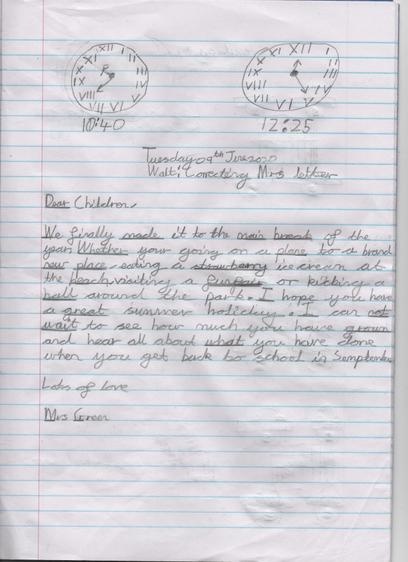 XII I II III IIII V VI VII VIII IX X XI
XII I II III IIII V VI VII VIII IX X XI
10:40 12:25
Tuesday 09th June 2020
Walt: Correcting Mrs letter
Dear Children,
We finally made it to the main break of the
year. Whether your going on a plane to a brand
new place, eating a strawberry icecream at
the beach, visiting a funfair or kitting a
ball around the park. I hope you have
a great summer holiday. I can not
wait to see how much you have grown
and hear all about what you have done
when you get back to school in Semptember
Lots of love
Mrs Green